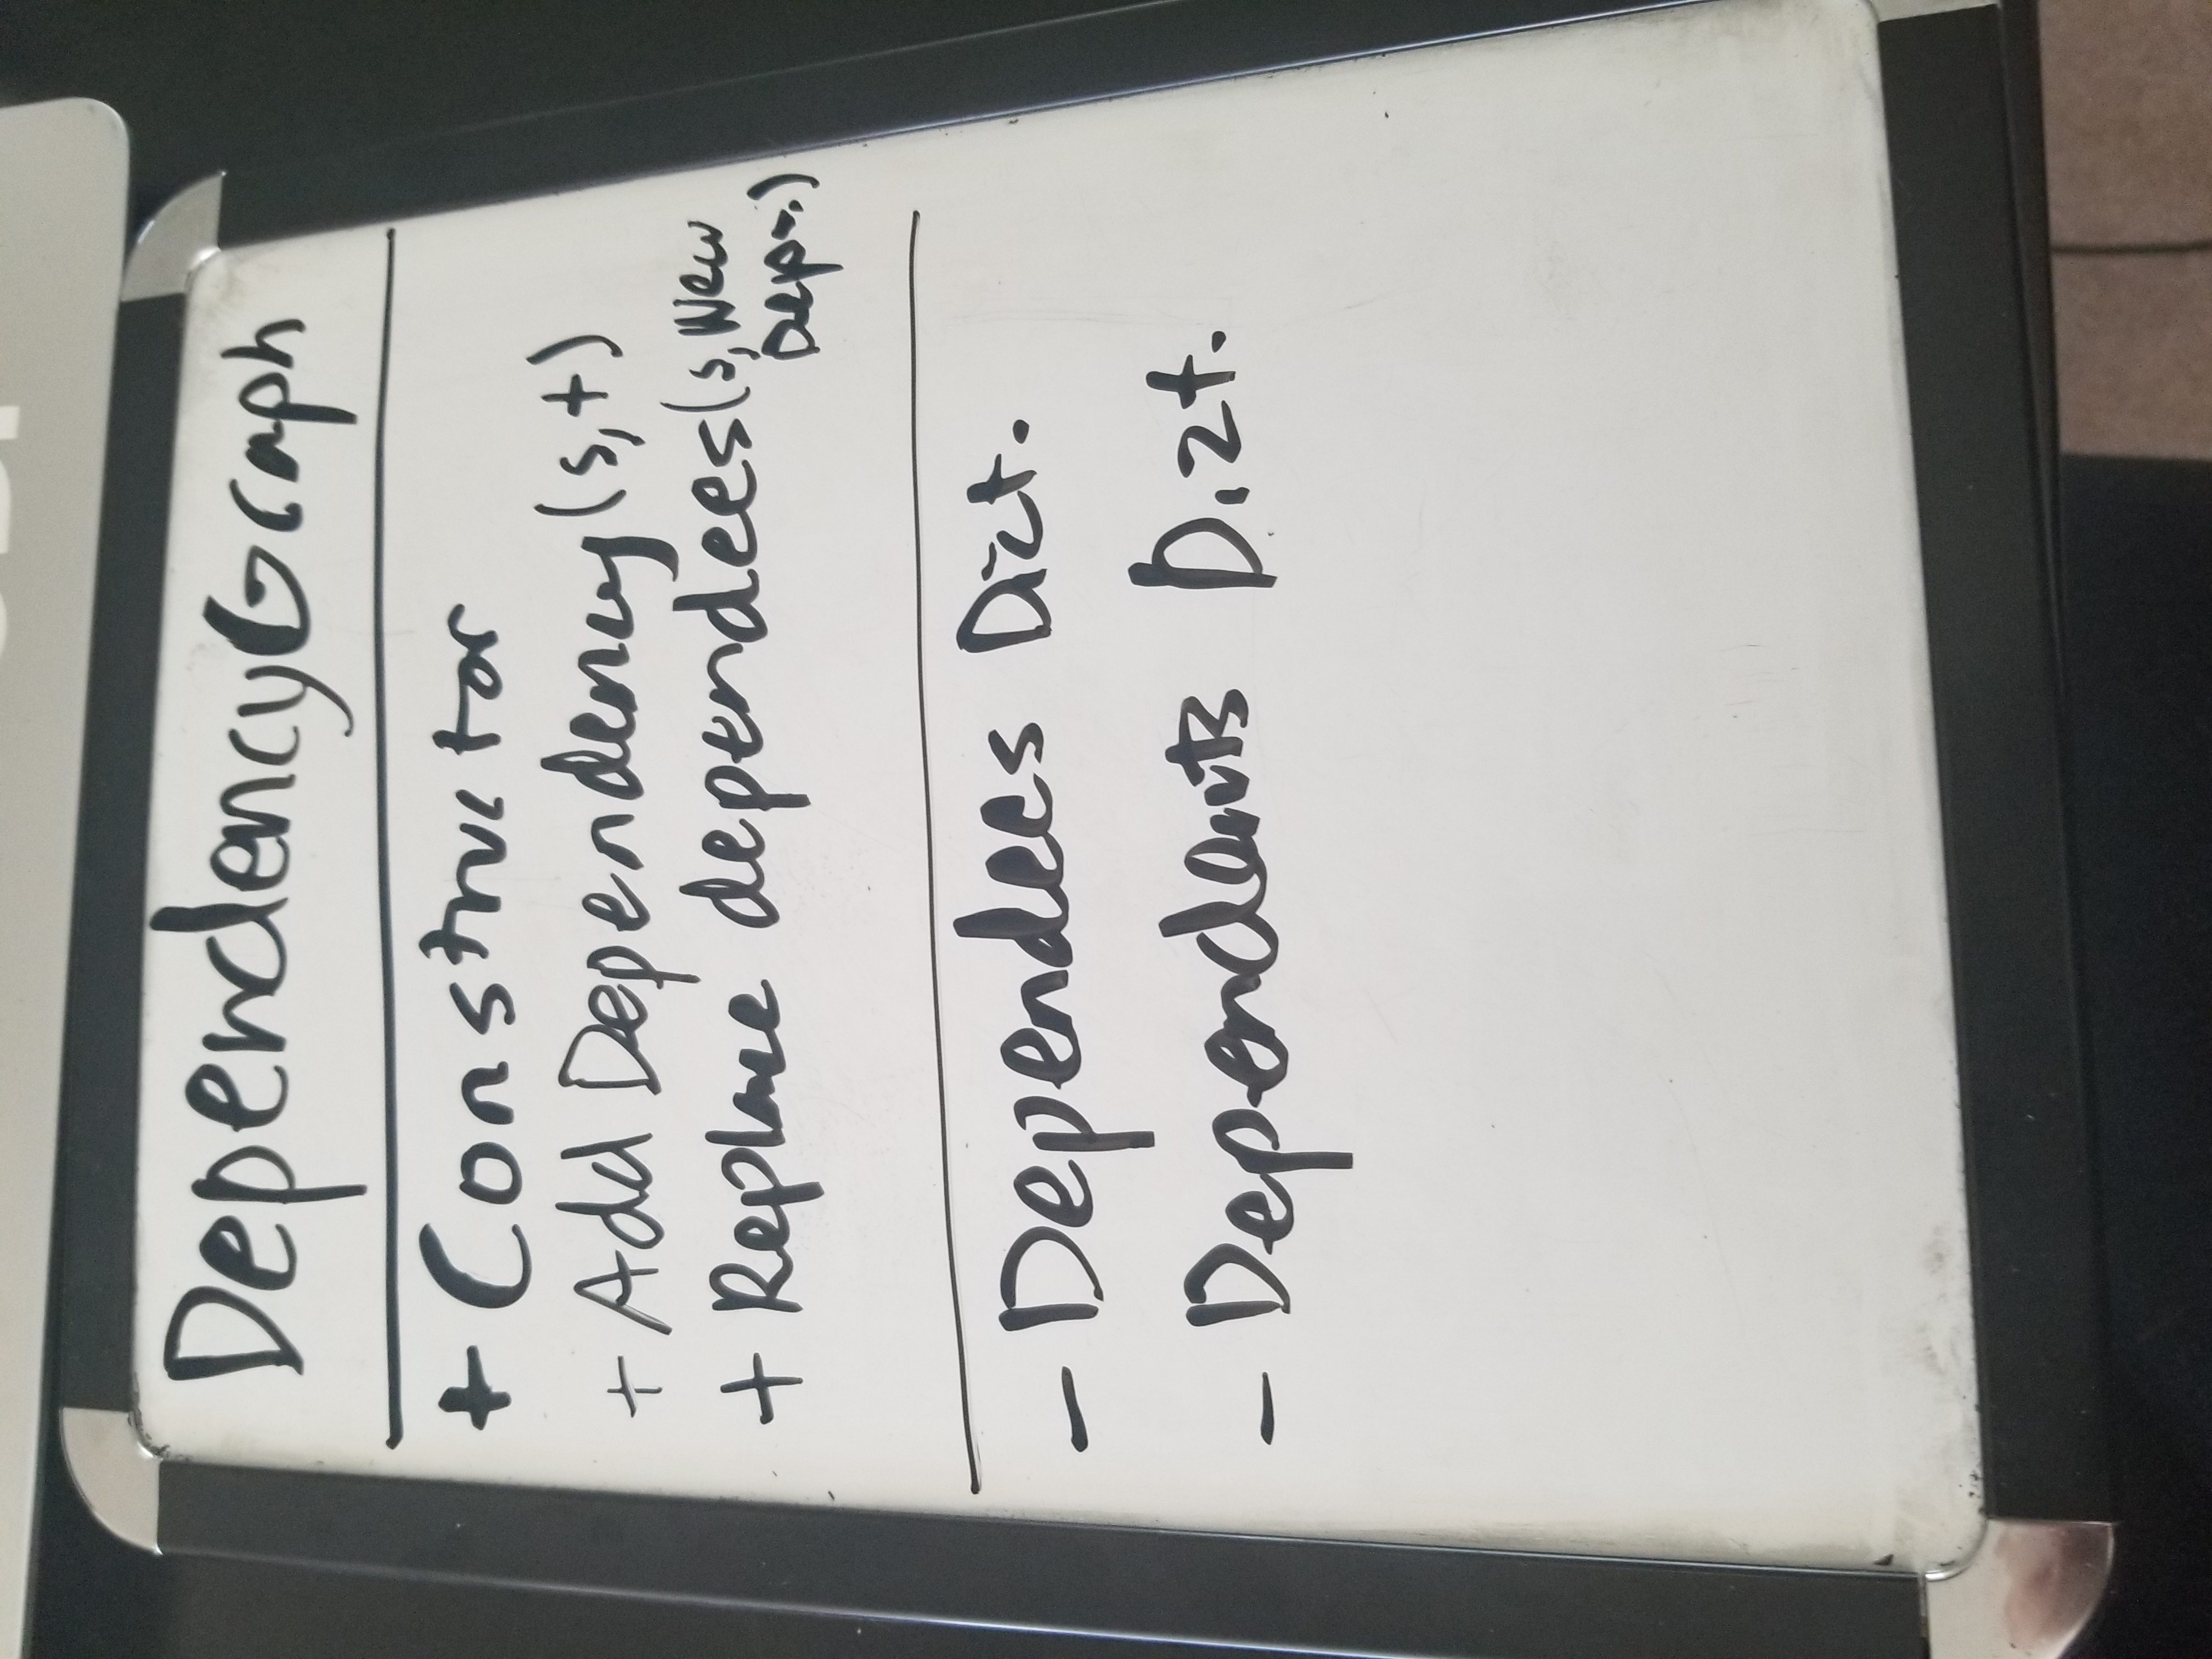 DependencyGraph
+ Constructor
+ Add Dependency(s,t)
+ Replace dependees(s, New
Depn.)
- Dependees Dict.
- Dependents Dict.